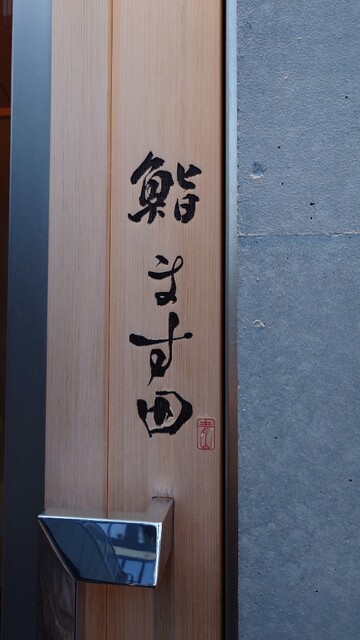 鮨ます田